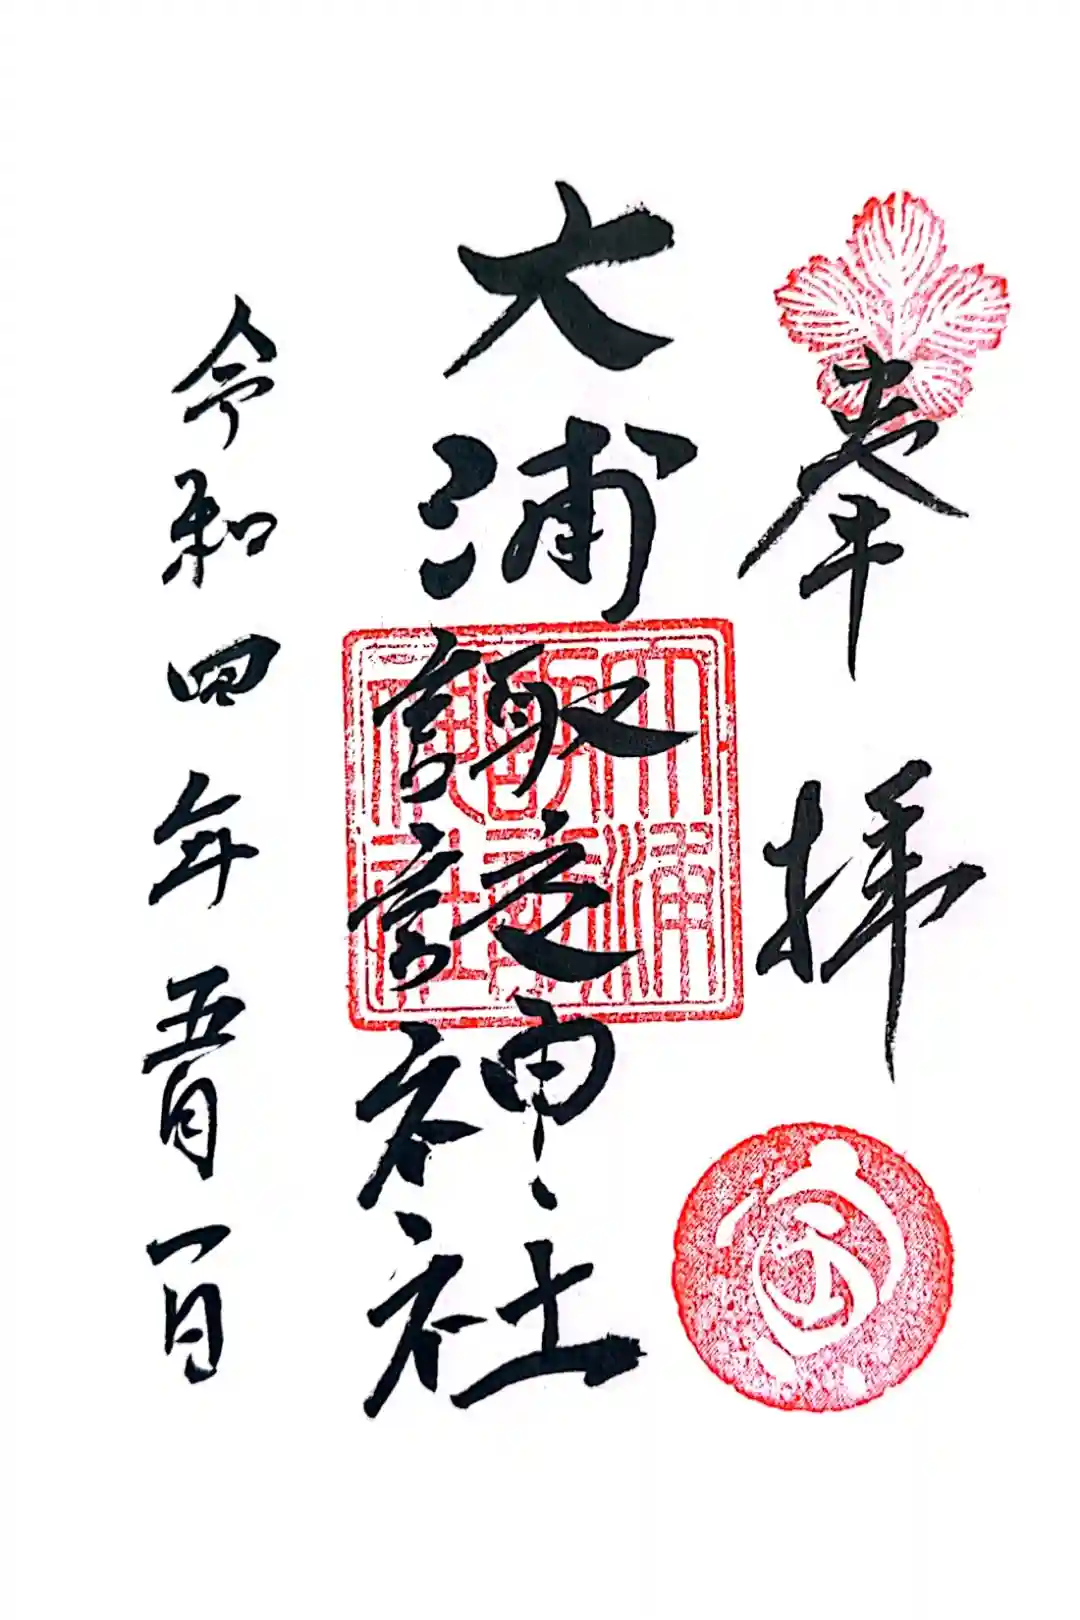 奉拝
大浦諏訪神社
令和四年五月一日